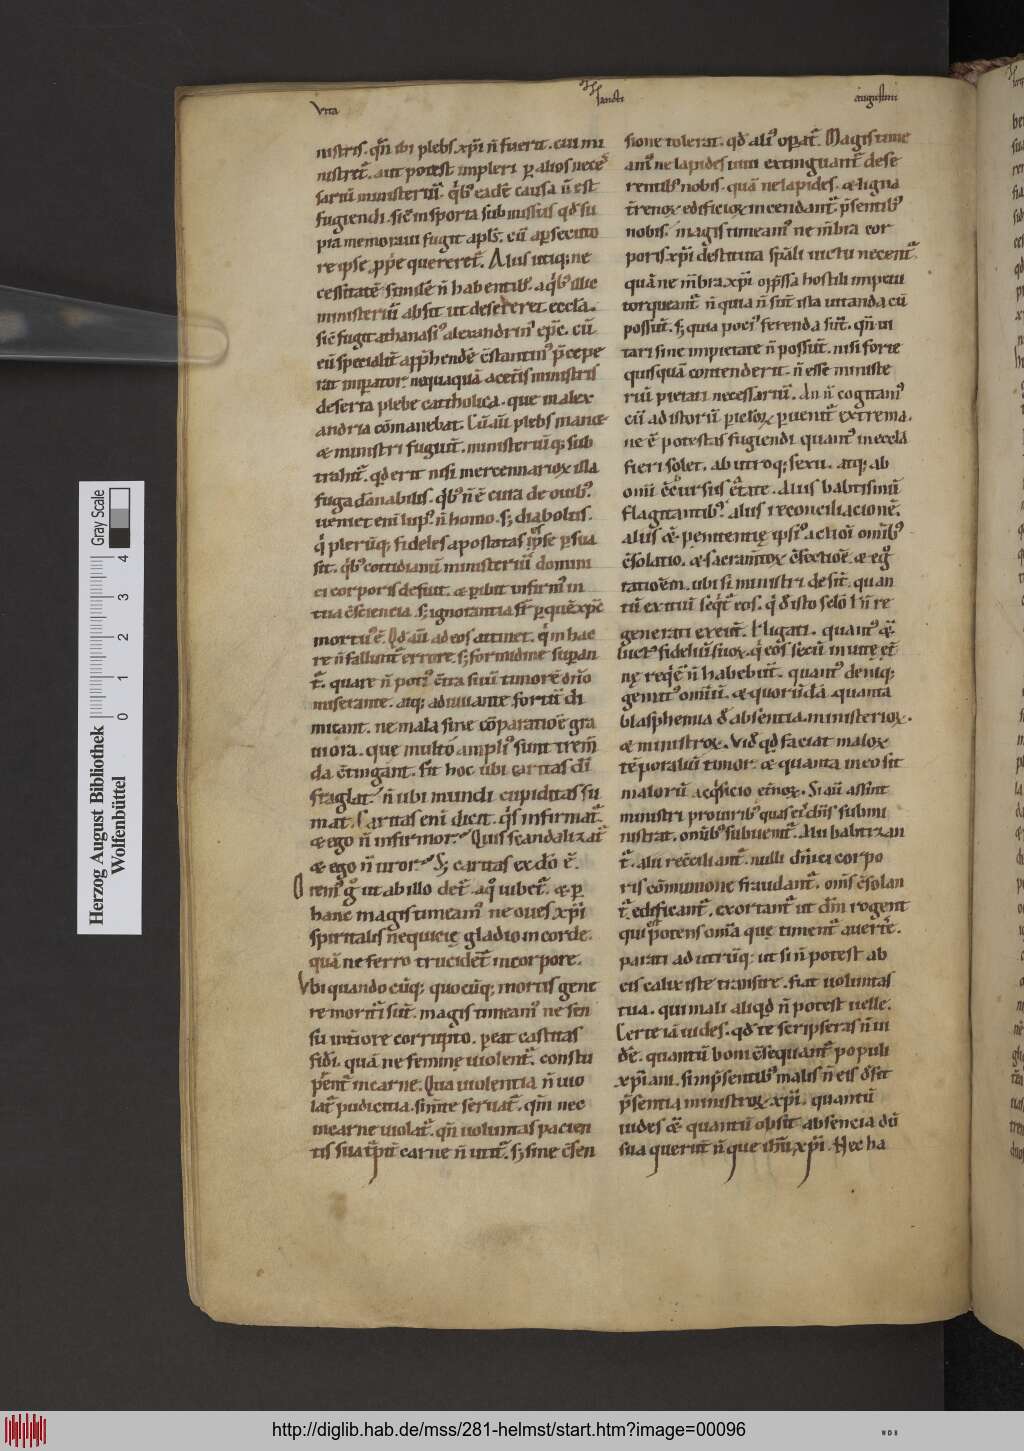 Vita sancti augustini
nistris. qn̄ ibi plebs xp̄i n̄ fuerit. cui mi
nistret̄. aut potest impleri ꝑ alios neces
sariū ministeriū. qͥbꝰ eadē causa n̄ est
fugiendi. sic̄ in sporta submissus qđ su
pra memoraui fugit apl̄s. cū a ꝑsecuto
re ipse ꝓprie quereret̄. Aliis utiq; ne
cessitatē similē n̄ habentibꝰ. a qͥbꝰ illic
ministeriū absit ut desereret eccl̄a.
sic̄ fugit athanasiꝰ alexandrinꝰ ep̄c. cū
eū specialit̄ app̄hendē c̄stantinꝰ p̄cepe
rat imꝑator. nequaquā a cet̄is ministris
deserta plebe catholica. que in alex
andria cōmanebat. Cū aū plebs manet
& ministri fugiūt. ministeriūq; sub
trahit̄. qđ erit nisi mercennarioꝝ illa
fuga dānabilis. qͥbꝰ n̄ ē cura de ouibꝰ.
ueniet enī lupꝰ. n̄ homo. s; diabolus.
qͥ plerūq; fideles apostatas ēe ꝑsua
sit. qͥbꝰ cottidianū ministeriū domini
ci corporis defuit. & ꝑibit infirmꝰ in
tua c̄scientia. s; ignorantia fr̄ ꝑ quē xp̄c
mortuꝰ ē. Qđ aū ad eos attinet. qͥ in hac
re n̄ fallunt̄ errore. s; formidine suꝑan
t̄. quare n̄ potiꝰ c̄tra suū timorē dn̄o
miserante. atq; adiuuante fortit̄ di
micant. ne mala sine cōparatiōe gra
uiora. que multo ampliꝰ sunt trem̄
da c̄tingant. fit hoc ubi caritas dī
flaglat̄. n̄ ubi mundi cupiditas fu
mat. Caritas enī dicit. qͥs infirmat̄.
& ego n̄ infirmor. Quis scandalizat̄
& ego n̄ uror. S; caritas ex dō ē.
Oremꝰ gͦ ut ab illo det̄. a qͦ iubet̄. & ꝑ
hanc magis timeamꝰ ne oues xp̄i
spiritalis neqͥcię gladio in corde.
quā ne ferro trucident̄ in corpore.
Vbi quandocūq; quocūq; mortis gene
re morituri sūt. magis timeamꝰ ne sen
su int̄iore corrupto. ꝑeat castitas
fidei. quā ne femine uiolent̄. constu
pͣent̄ in carne. Quia uiolentia n̄ uio
lat̄ pudicitia. si m̄te seruat̄. qm̄ nec
in carne uiolat̄. qn̄ uoluntas pacien
tis sua t̄pit̄ carne n̄ utit̄. s; sine c̄sen
sione tolerat. qđ aliꝰ oꝑat̄. Magis time
amꝰ ne lapides uiui extinguant̄ dese
rentibꝰ nobis. quā ne lapides & ligna
t̄renoꝝ edificioꝝ incendant̄ p̄sentibꝰ
nobis. magis timeamꝰ ne m̄bra cor
poris xp̄i destituta spāli uictu necent̄.
quā ne m̄bra xp̄i opp̄ssa hostili impetu
torqueant̄. n̄ quia n̄ sūt ista uitanda cū
possūt. s; quia pociꝰ ferenda sūt. qn̄ ui
tari sine impietate n̄ possūt. nisi forte
quisquā contenderit. n̄ esse ministe
riū pietati necessariū. An n̄ cogitamꝰ
cū ad istorū ꝑicl̄oꝝ ꝑuenit̄ extrema.
ne ē potestas fugiendi. quantꝰ in eccl̄a
fieri solet. ab utroq; sexu. atq; ab
omī c̄cursus etate. Aliis babtismū
flagitantibꝰ. aliis reconciliacionē.
aliis & penitentię ipsiꝰ actionī. omībꝰ
c̄solatio. & sacram̄toꝝ c̄fectiōe. & eꝝ
ratiōem. ubi si ministri desit̄. quan
tū exitiū seqͥt̄ eos. qͥ d isto sc̄lo l̄ n̄ re
generati exeūt. l̄ ligati. quantꝰ &
luctꝰ fideliū suoꝝ. qͥ eos secū in uitę et̄
nę reqͥe n̄ habebūt. quantꝰ deniq;
gemitꝰ omīū. & quorūdā quanta
blasphemia đ absentia ministerioꝝ.
& ministroꝝ. Vid̄ qđ faciat maloꝝ
tēporaliū timor. & quanta in eo sit
malorū acqͥsicio et̄noꝝ. Si aū assint
ministri pro uiribꝰ quas eiꝰ dn̄s submi
nistrat. omībꝰ subuenit̄. Alii babtizan
t̄. alii rec̄ciliant̄. nulli dn̄ici corpo
ris cōmunione fraudant̄. om̄s c̄solan
t̄. edificant̄. exortant̄ ut dm̄ rogent
qui potens om̄ia que timent̄ auert̄e.
parati ad utrūq; ut si n̄ potest ab
eis calix iste transire. fiat uoluntas
tua. qui mali aliqđ n̄ potest uelle.
Certe iā uides. qđ te scripseras n̄ ui
dē. quantū boni c̄sequant̄ populi
xp̄iani. si in p̄sentibꝰ malis n̄ eis desit
p̄sentia ministroꝝ xp̄i. quantū
uides & quantū obsit absencia dū
sua querūt n̄ que ihū xp̄i. Nec ha
Herzog August Bibliothek
Wolfenbüttel
0 1 2 3 4
Gray Scale
http://diglib.hab.de/mss/281-helmst/start.htm?image=00096